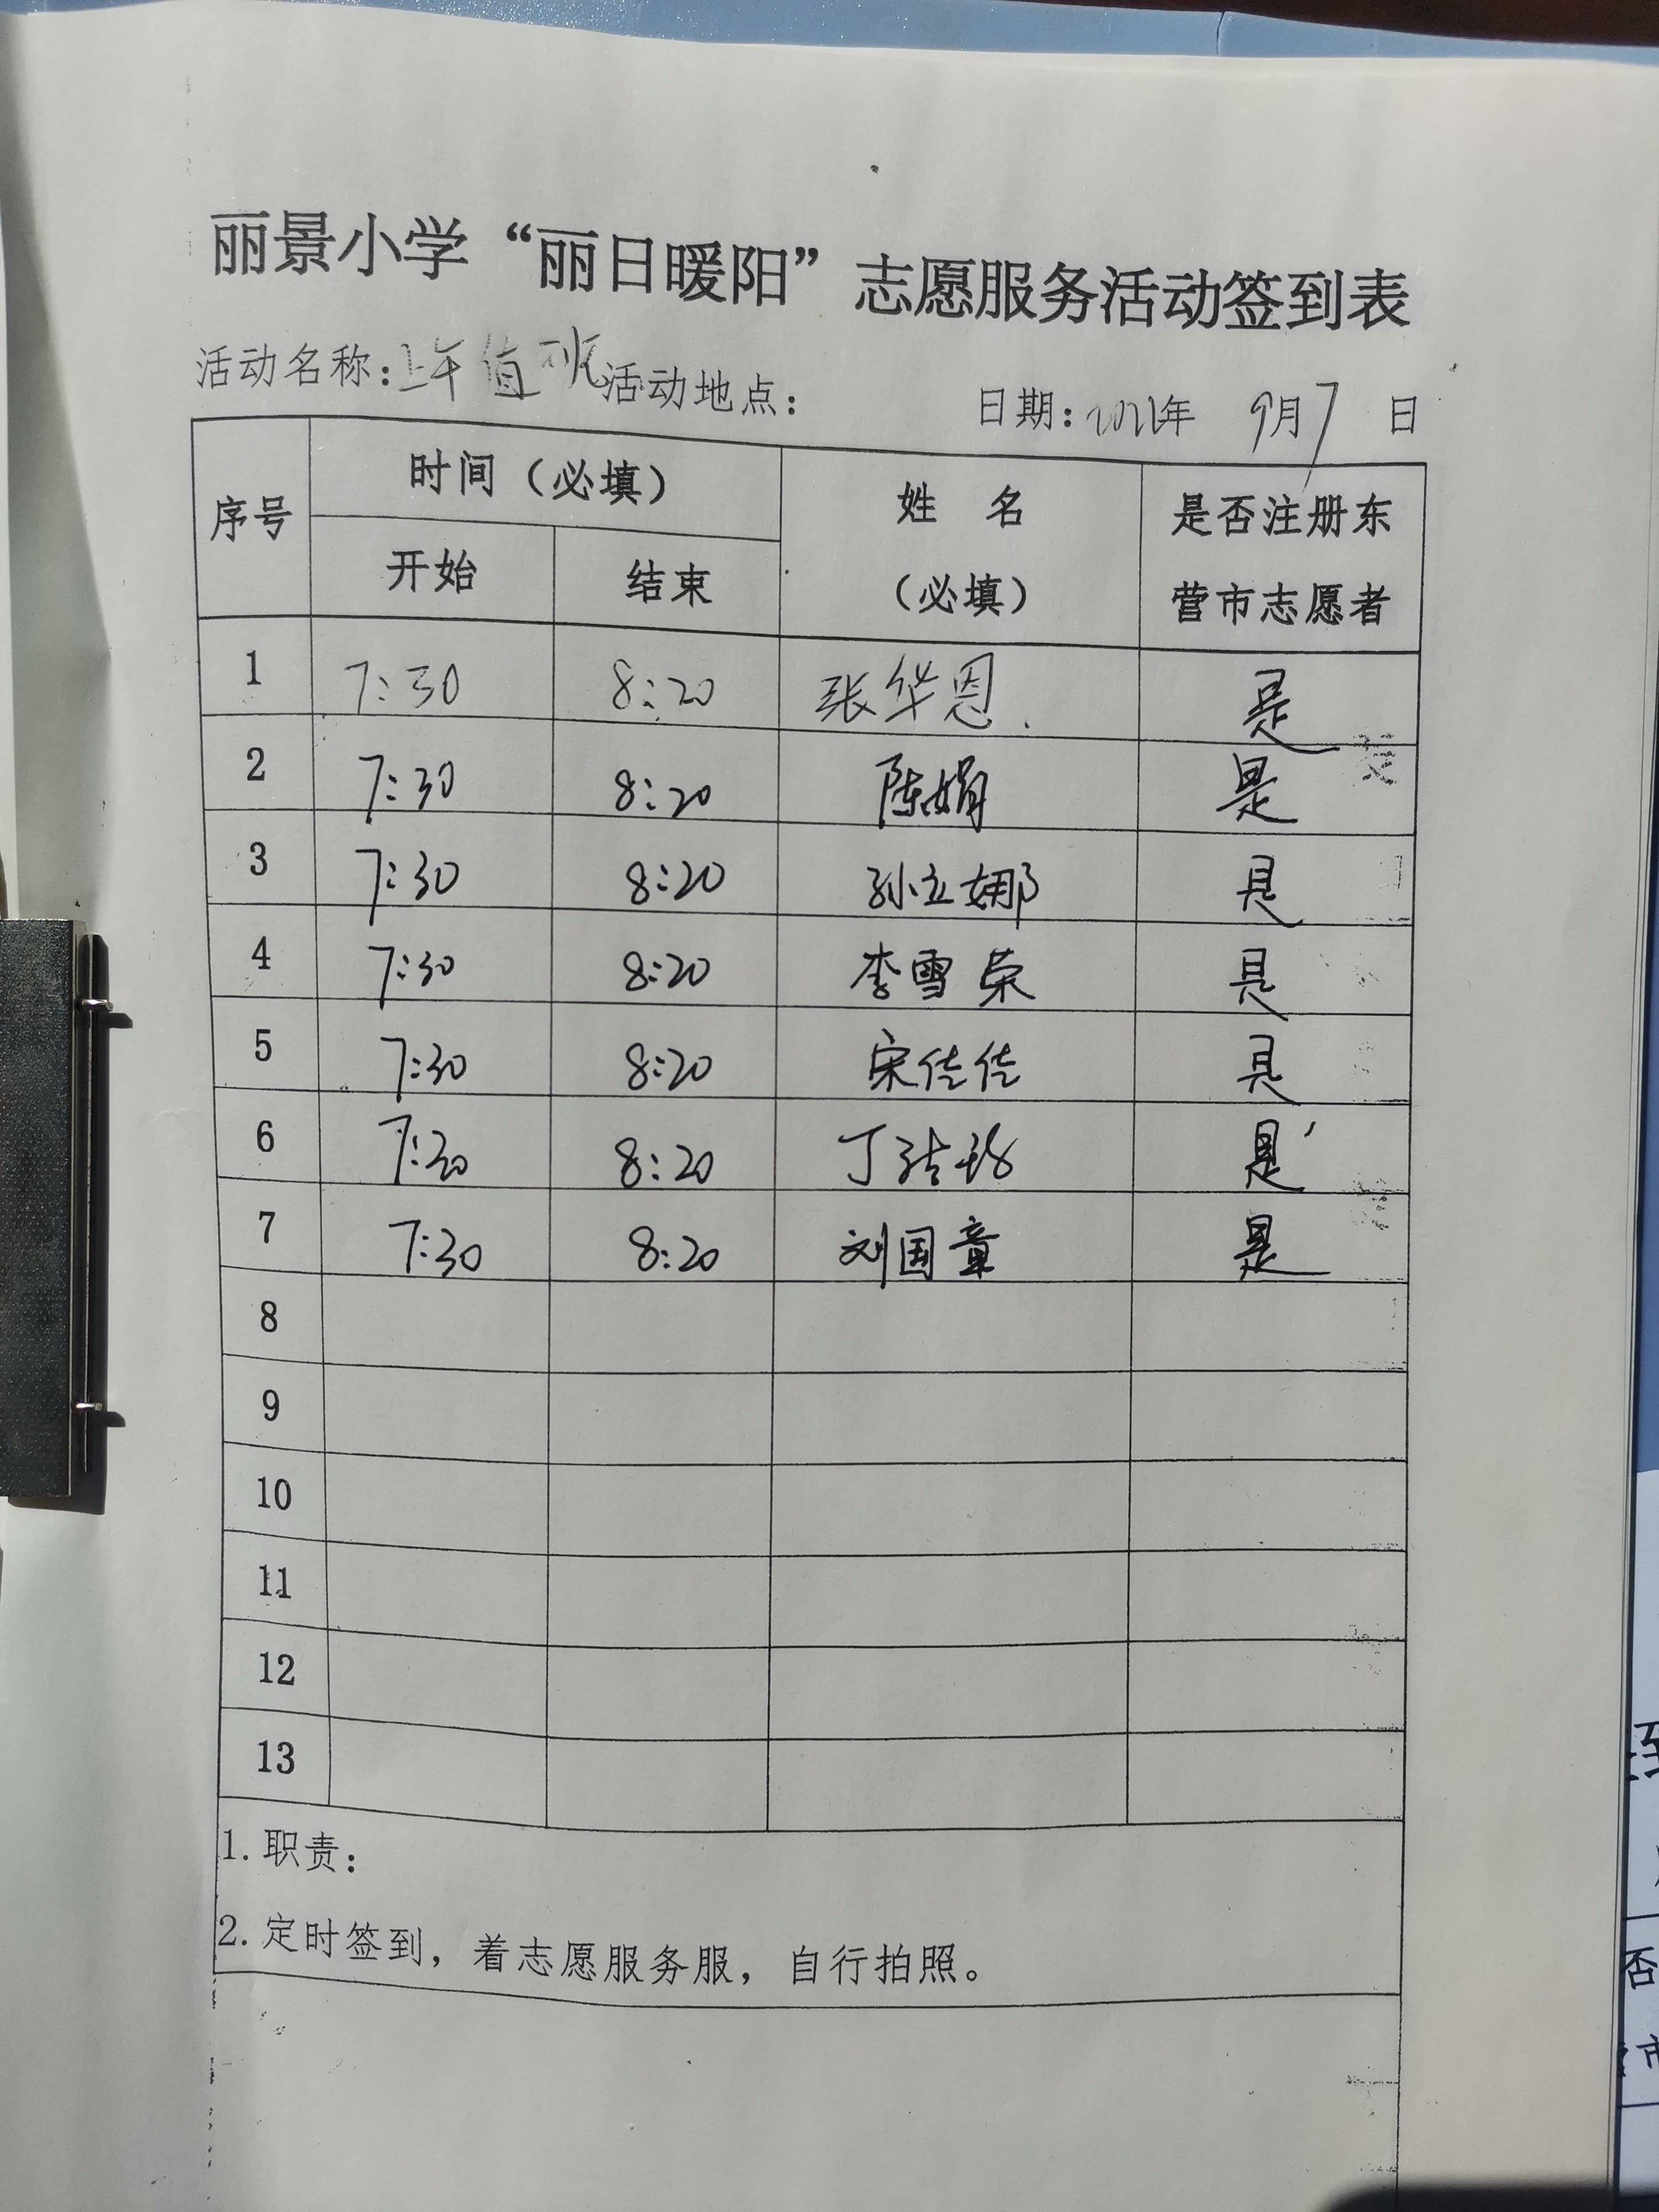 丽景小学“丽日暖阳”志愿服务活动签到表
活动名称:上午值班 活动地点: 日期: 年 9月7日
序号 时间（必填） 姓 名 是否注册东
开始 结束 （必填） 营市志愿者
1 7:30 8:20 张华恩 是
2 7:30 8:20 陈娟 是
3 7:30 8:20 孙立娜 是
4 7:30 8:20 李雪荣 是
5 7:30 8:20 宋佳佳 是
6 7:30 8:20 丁 是
7 7:30 8:20 刘国章 是
8
9
10
11
12
13
1.职责:
2.定时签到，着志愿服务服，自行拍照。